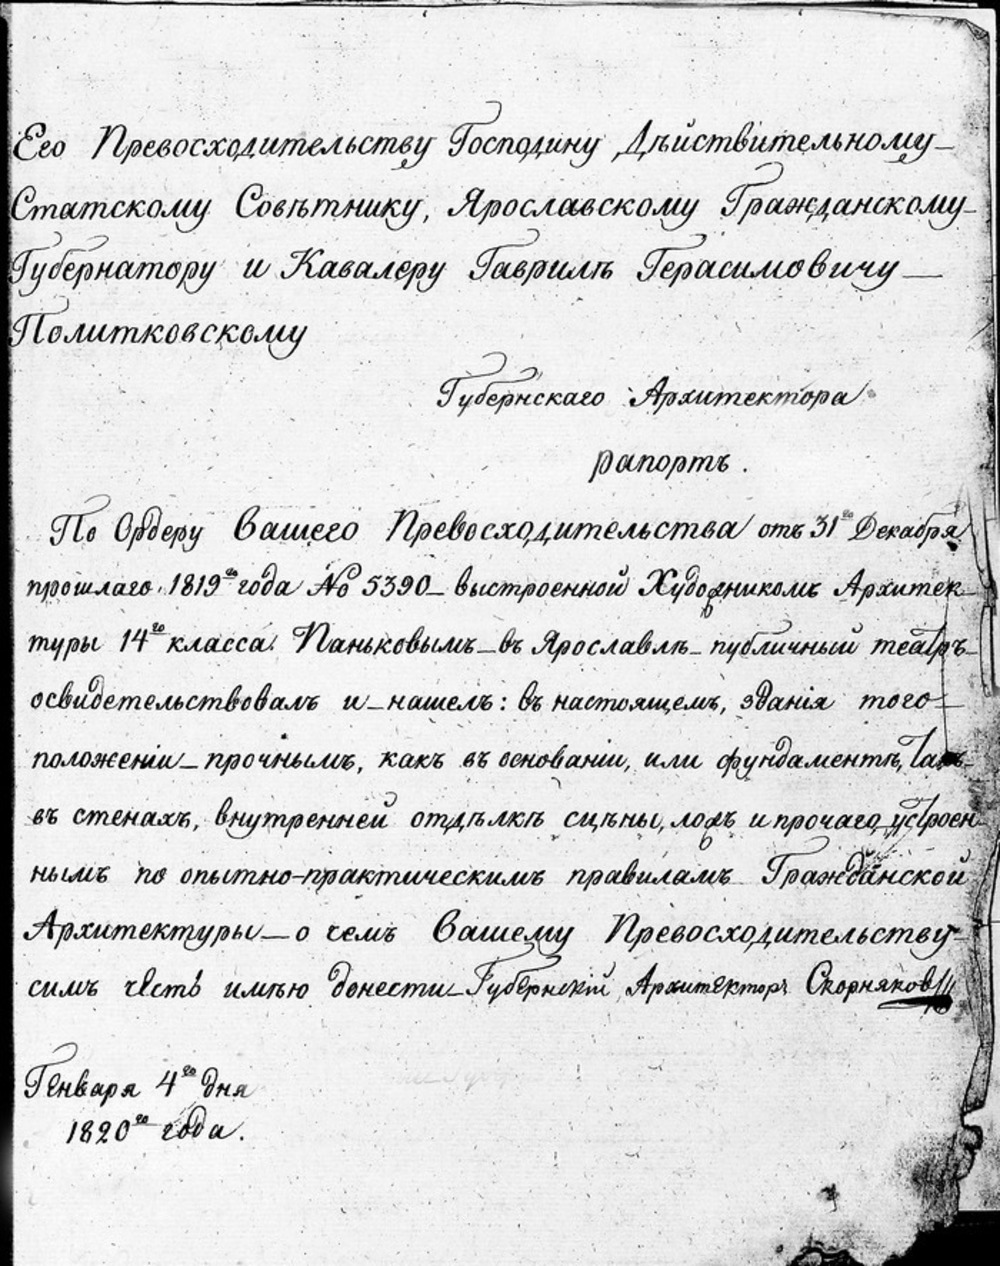 Его Превосходительству Господину Дѣйствительному
Статскому Совѣтнику, Ярославскому Гражданскому
Губернатору и Кавалеру Гаврилѣ Герасимовичу
Политковскому
Губернскаго Архитектора
рапортъ.
По Ордеру Вашего Превосходительства отъ 31го Декабря
прошлаго 1819го года № 5390 – выстроенной Художникомъ Архитек-
туры 14го класса Паньковымъ – въ Ярославлѣ – публичный театръ
освидетельствовалъ и – нашелъ: въ настоящемъ, зданія того
положеніи – прочнымъ, какъ въ основаніи, или фундаментѣ, такъ
въ стенахъ, внутренней отдѣлкѣ сцѣны, ложъ и прочаго устроен-
нымъ по опытно-практическимъ правиламъ Гражданской
Архитектуры – о чемъ Вашему Превосходительству
симъ честь имѣю донести – Губернскій Архитекторъ Скорняковъ
Генваря 4го дня
1820го года.